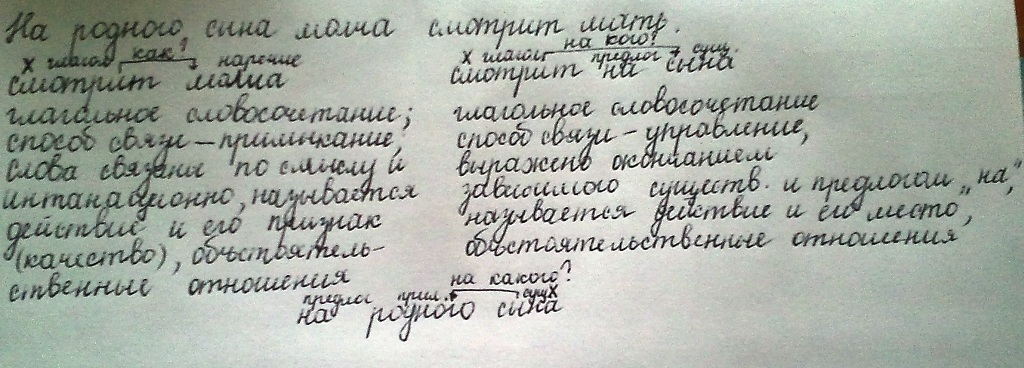 На родного сина молча смотрит мать.
как? на кого?
х глагол наречие х глагол предлог сущ.
смотрит молча смотрит на сына
глагольное словосочетание; глагольное словосочетание
способ связи – примыкание, способ связи – управление,
слова связаны по смыслу и выражено окончанием
интанационно, называется зависимого существ. и предлогом „на",
действие и его признак называется действие и его место,
(качество), обьстоятель- обьстоятельственные отношения
ственные отношения
на какого?
предлог прил. сущ х
на родного сына